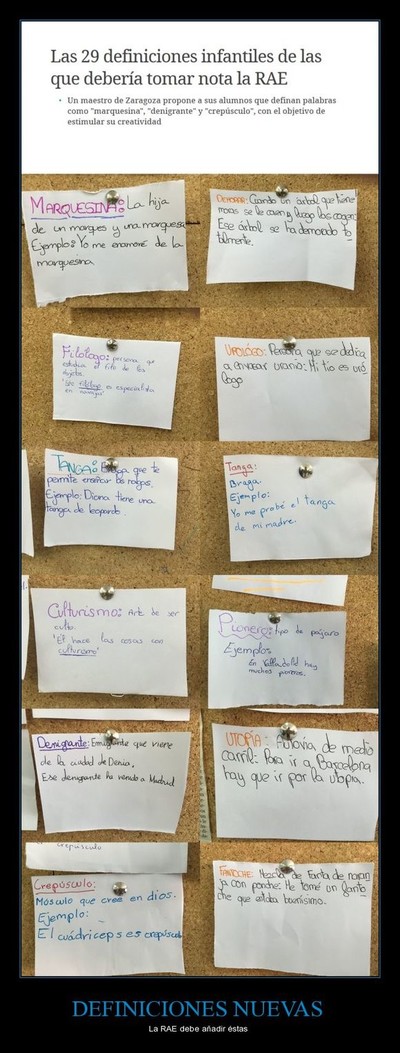 Las 29 definiciones infantiles de las
que debería tomar nota la RAE
Un maestro de Zaragoza propone a sus alumnos que definan palabras
como "marquesina", "denigrante" y "crepúsculo", con el objetivo de
estimular su creatividad
MARQUESINA: La hija
de un marques y una marquesa
Ejemplo: Yo me enamoré de la
marquesina
DEMORAR: Cuando un árbol que tiene
moras se le caen y luego las coges:
Ese árbol se ha demorado to
talmente.
Filólogo: persona que
estudia el filo de los
objetos.
"Ese filólogo es especialista
en navajas"
URÓLOGO: Persona que se dedica
a envasar uranio: Mi tio es uró
logo
TANGA: Braga que te
permite enseñar las nalgas.
Ejemplo: Diana tiene una
tanga de leopardo.
Tanga:
Braga.
Ejemplo:
Yo me probé el tanga
de mi madre.
Culturismo: Arte de ser
culto.
"Él hace las cosas con
culturismo"
Pionero: tipo de pájaro
Ejemplo:
En Valladolid hay
muchos pioneros.
Denigrante: Emigrante que viene
de la ciudad de Denia.
Ese denigrante ha venido a Madrid
UTOPÍA: Autovia de medio
carril: Para ir a Barcelona
hay que ir por la utopia.
crepúsculo
Crepúsculo:
Músculo que cree en dios.
Ejemplo:
El cuádriceps es crepúsculo
FANTOCHE: Mezcla de Fanta de naran
ja con ponche: He tomé un fanto
che que estaba buenísimo.
DEFINICIONES NUEVAS
La RAE debe añadir éstas